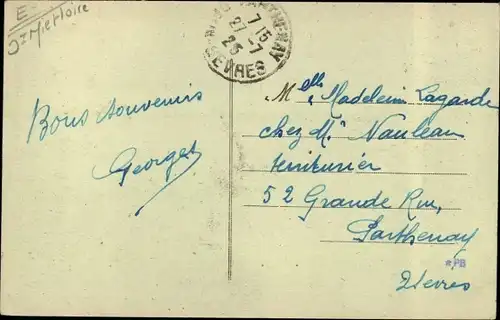 St Hilaire
PARTHENAY
7 15
27-7
25
SEVRES
Bons souvenirs
Georget
Melle Madeleine Lagarde
chez Mr Nauleau
teinturier
52 Grande Rue,
Parthenay
*PB
2 Sevres